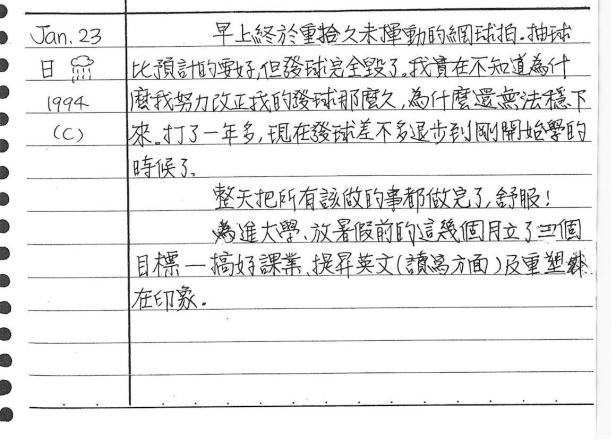 Jan. 23 早上終於重拾久未揮動的網球拍。抽球
日 比預計的要好，但發球完全毀了。我實在不知道為什
1994 麼我努力改正我的發球那麼久，為什麼還無法穩下
(C) 來。打了一年多，現在發球差不多退步到剛開始學的
時候了。
整天把所有該做的事都做完了，舒服！
為進大學、放暑假前的這幾個月立了三個
目標—搞好課業、提昇英文（讀寫方面）及重塑外
在印象。